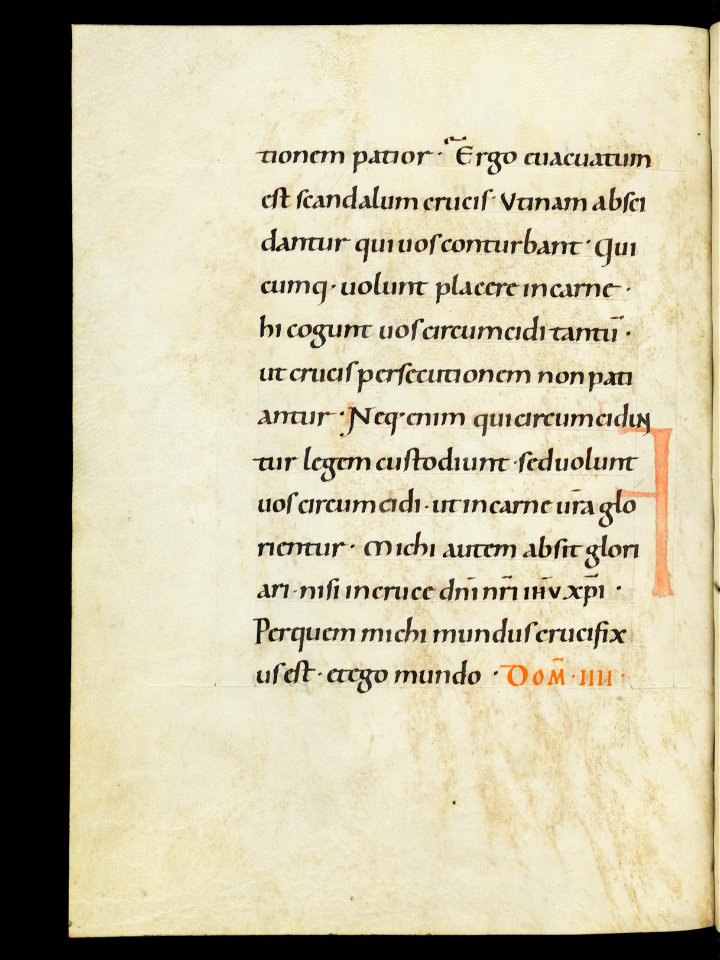 tionem patior · Ergo euacuatum
est scandalum crucis · Vtinam absci
dantur qui uos conturbant · Qui
cumq · uolunt placere in carne ·
hi cogunt uos circumcidi tantū ·
ut crucis persecutionem non pati
antur · Neq · enim qui circumcidun
tur legem custodiunt · sed uolunt
uos circumcidi · ut in carne ur̄a glo
rientur · Michi autem absit glori
ari · nisi in cruce dn̄i nr̄i ih̄v xp̄i ·
Per quem michi mundus crucifix
us est · et ego mundo · Dom̄ · IIII ·